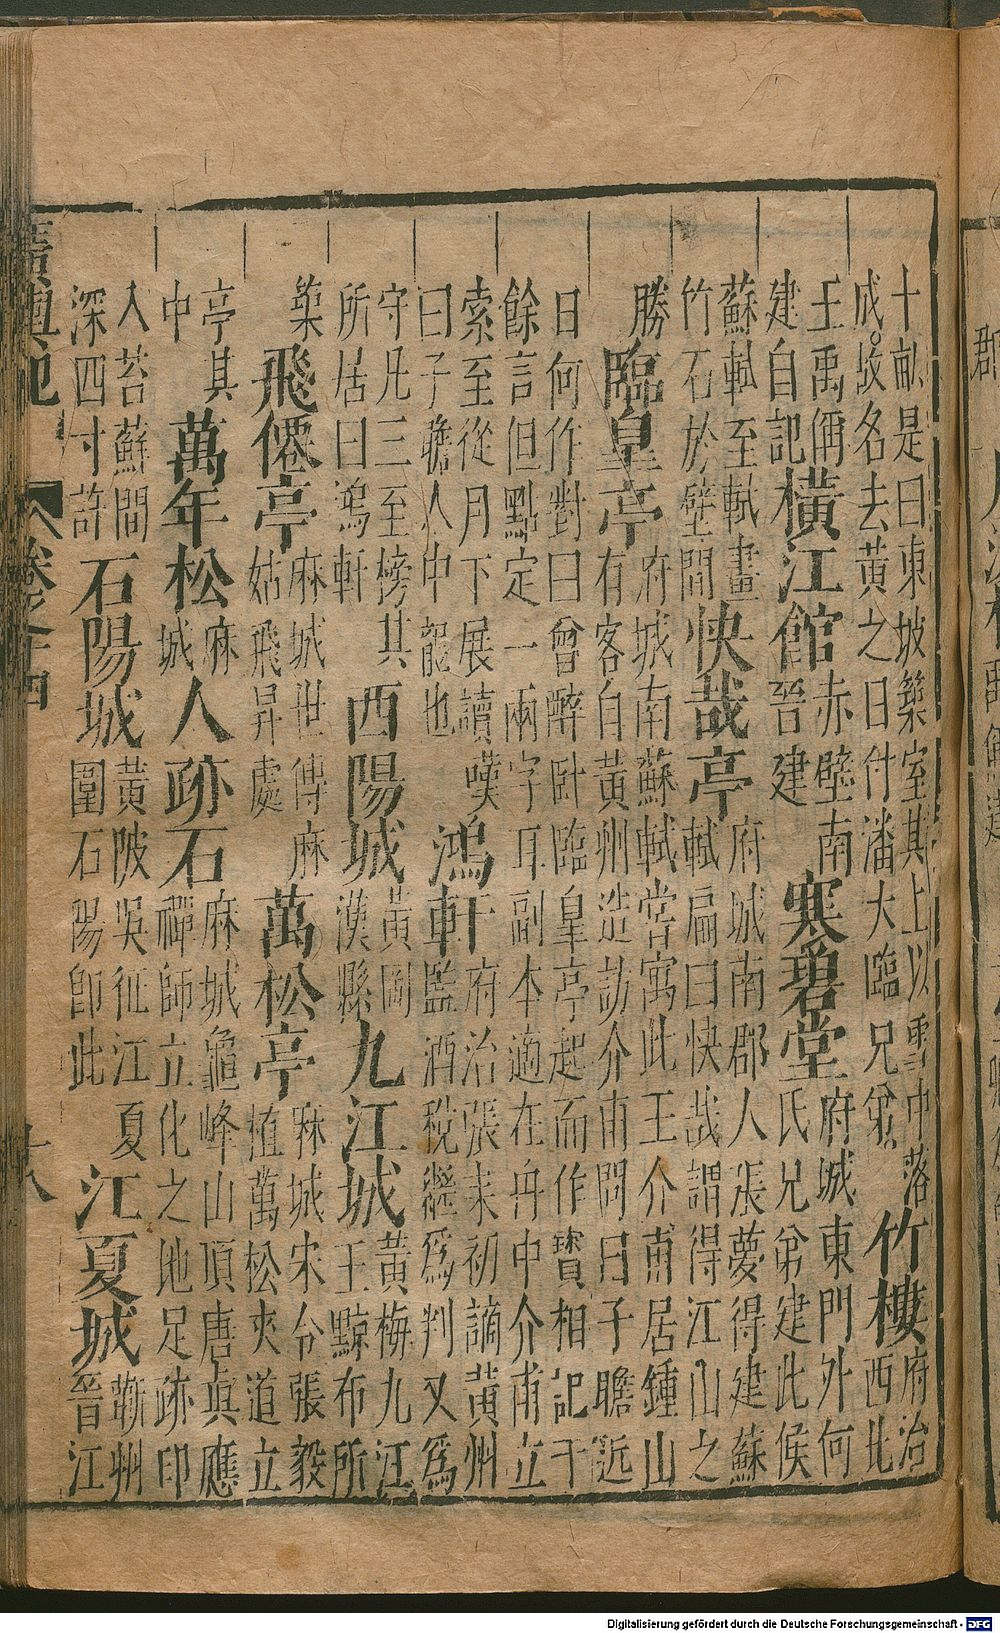 十畝是曰東坡築室其上以雪中落成故名去黃之日付潘大臨兄弟 竹樓 府治西北
王禹偁建自記 橫江館 赤壁南晉建 寒碧堂 府城東門外何氏兄弟建此候
蘇軾至軾畫竹石於壁間 快哉亭 府城南郡人張夢得建蘇軾扁曰快哉謂得江山之
勝 臨皇亭 府城南蘇軾嘗寓此王介甫居鍾山有客自黃州造訪介甫問曰子瞻近
日何作對曰曾醉臥臨皇亭起而作寶相記千餘言但點定一兩字耳副本適在舟中介甫立
索至從月下展讀嘆曰子瞻人中龍也 鴻軒 府治張耒初謫黃州監酒稅繼爲判又爲
守凡三至榜其所居曰鴻軒 西陽城 黃岡漢縣 九江城 黃梅九江王黥布所
築 飛僊亭 麻城世傳麻姑飛昇處 萬松亭 麻城宋令張毅植萬松夾道立
亭其中 萬年松 麻城 人跡石 麻城龜峰山頂唐眞應禪師立化之地足跡印
入苔蘚間深四寸許 石陽城 黃陂吳征江夏圍石陽卽此 江夏城 蘄州晉江
廣輿記 卷之十四 十八
Digitalisierung gefördert durch die Deutsche Forschungsgemeinschaft - DFG